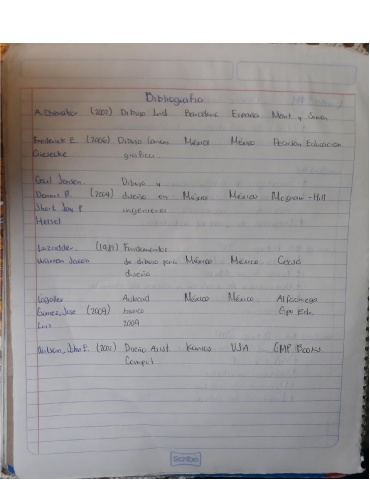 Bibliografia
A. Chevalier (2002) Dibujo Ind. Barcelona España Mont y Simon
Frederick E. (2006) Dibujo Comun México México Pearson Educacion
Giesecke grafico
Cecil Jensen. Dibujo y
Dennis R. (2004) diseño en México México Mcgraw-Hill
Short Jay P. ingenieria
Helsel
Luzadder. (1981) Fundamentos
Warren Jacon de dibujo para México México Cecsa
diseño
Lagoller Autocad México México Alfaomega
Gomez, Jose (2009) basico Gpo Edi.
Luis 2009
Wilson, John E. (2002) Diseño Asist. Kansas USA CMP Books.
Comput
Scribe